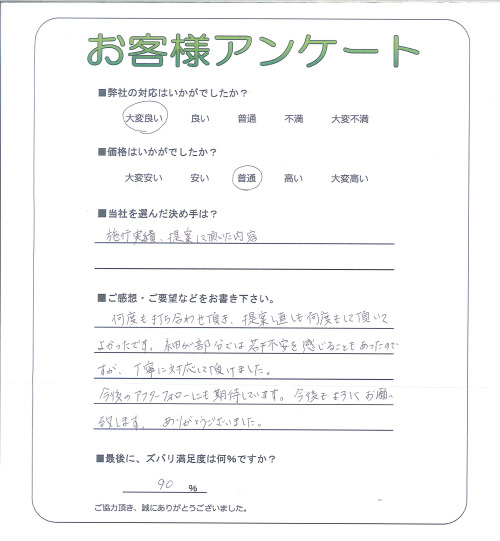 お客様アンケート
■弊社の対応はいかがでしたか？
大変良い 良い 普通 不満 大変不満
■価格はいかがでしたか？
大変安い 安い 普通 高い 大変高い
■当社を選んだ決め手は？
施行実績、提案して頂いた内容
■ご感想・ご要望などをお書き下さい。
何度も打ち合わせ頂き、提案し直しも何度もして頂いて
よかったです。細かい部分では若干不安を感じることもあったので
すが、丁寧に対応して頂けました。
今後のアフターフォローにも期待しています。今後もよろしくお願い
致します。 ありがとうございました。
■最後に、ズバリ満足度は何％ですか？
90 %
ご協力頂き、誠にありがとうございました。